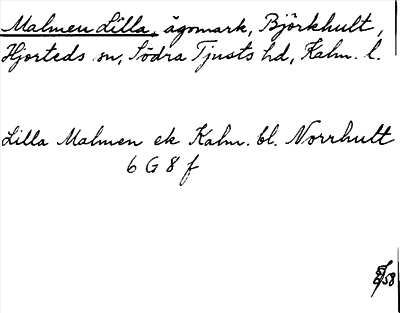 Malmen Lilla, ägomark, Björkhult,
Hjorteds sn, Södra Tjusts hd, Kalm. l.
Lilla Malmen ek Kalm. bl. Norrhult
6 G 8 f
58